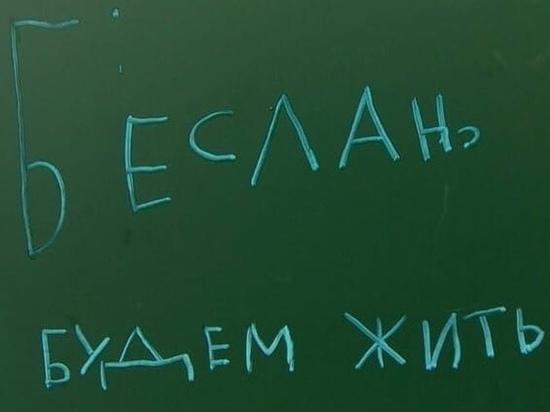 БЕСЛАН,
БУДЕМ ЖИТЬ